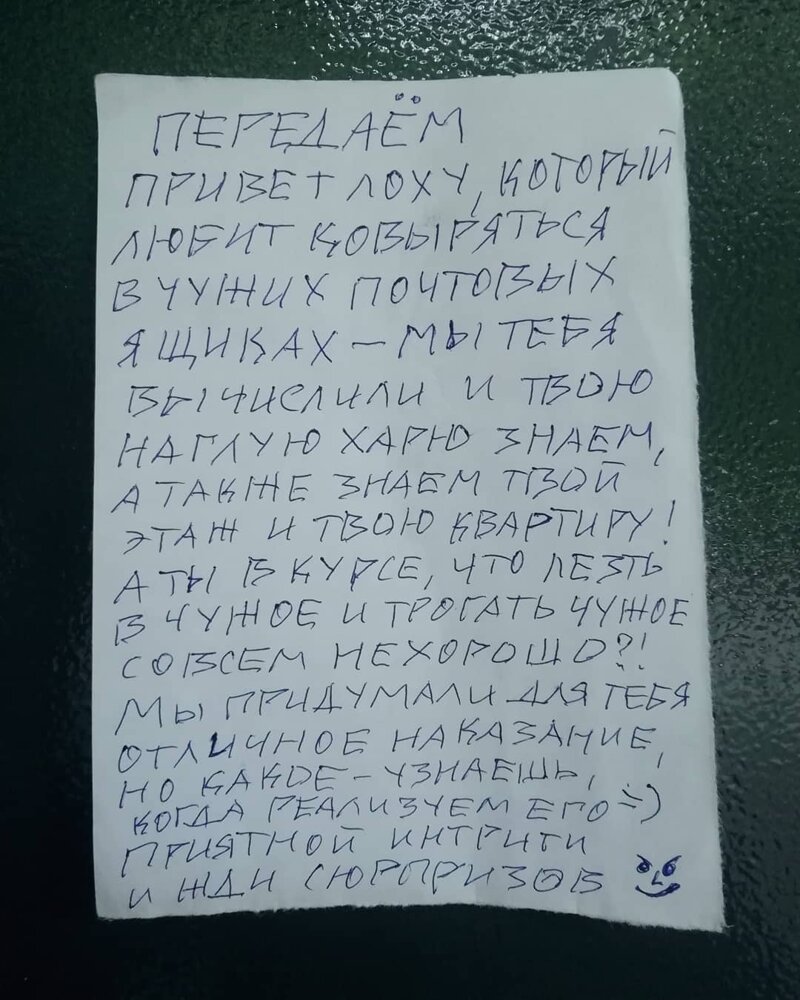 ПЕРЕДАЁМ
ПРИВЕТ ЛОХУ, КОТОРЫЙ
ЛЮБИТ КОВЫРЯТЬСЯ
В ЧУЖИХ ПОЧТОВЫХ
ЯЩИКАХ – МЫ ТЕБЯ
ВЫЧИСЛИЛИ И ТВОЮ
НАГЛУЮ ХАРЮ ЗНАЕМ,
А ТАКЖЕ ЗНАЕМ ТВОЙ
ЭТАЖ И ТВОЮ КВАРТИРУ!
А ТЫ В КУРСЕ, ЧТО ЛЕЗТЬ
В ЧУЖОЕ И ТРОГАТЬ ЧУЖОЕ
СОВСЕМ НЕХОРОШО?!
МЫ ПРИДУМАЛИ ДЛЯ ТЕБЯ
ОТЛИЧНОЕ НАКАЗАНИЕ,
НО КАКОЕ – УЗНАЕШЬ,
КОГДА РЕАЛИЗУЕМ ЕГО =)
ПРИЯТНОЙ ИНТРИГИ
И ЖДИ СЮРПРИЗОВ